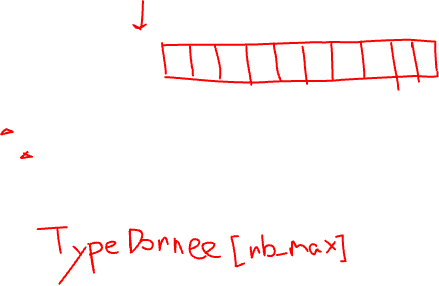 TypeDonnee [nb_max]